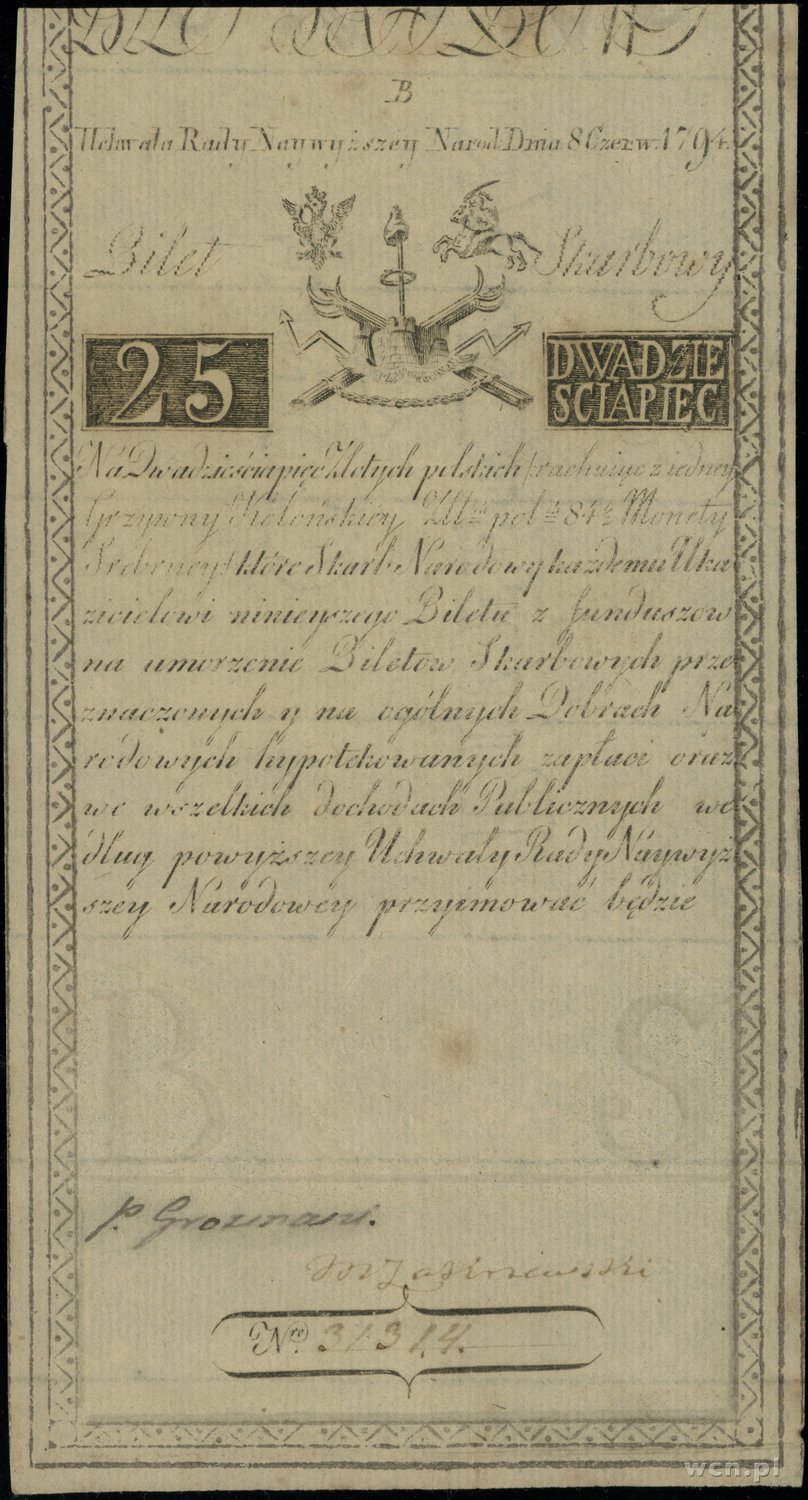 B
Uchwała Rady Naywyższey Narod: Dnia 8 Czerw. 1794.
Bilet Skarbowy
25 DWADZIE
SCIAPIĘC
Na Dwadzieściapięć Złotych polskich /rachuiąc z iedney
Grzywny Kolońskiey Zll. pol. 84½ Monety
Srebrney/ które Skarb Narodowy każdemu Uka
zicielowi ninieyszego Biletu z funduszow
na umorzenie Biletow Skarbowych prze
znaczonych y na ogólnych Dobrach Na
rodowych hypotekowanych zapłaci oraz
we wszelkich dochodach Publicznych we
dług powyższey Uchwały Rady Naywyż
szey Narodowey przyimować będzie
B S
p. Grozmani.
M Zakrzewski
Nro. 31314.
wcn.pl